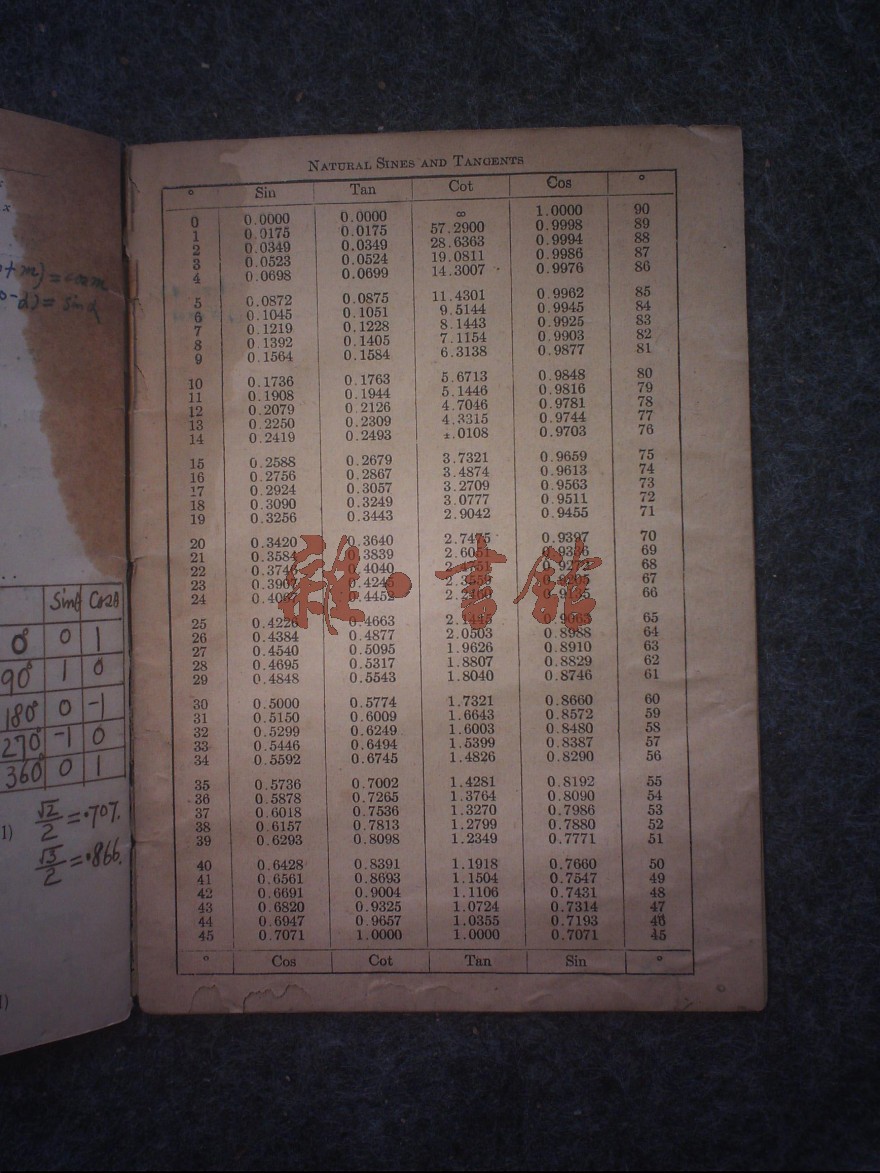 x
+m) = cos m
0-α) = sin α
Sinθ Cosθ
0° 0 1
90° 1 0
180° 0 -1
270° -1 0
360° 0 1
1) √2/2 = .707.
√3/2 = .866.
NATURAL SINES AND TANGENTS
° Sin Tan Cot Cos °
0 0.0000 0.0000 ∞ 1.0000 90
1 0.0175 0.0175 57.2900 0.9998 89
2 0.0349 0.0349 28.6363 0.9994 88
3 0.0523 0.0524 19.0811 0.9986 87
4 0.0698 0.0699 14.3007 0.9976 86
5 0.0872 0.0875 11.4301 0.9962 85
6 0.1045 0.1051 9.5144 0.9945 84
7 0.1219 0.1228 8.1443 0.9925 83
8 0.1392 0.1405 7.1154 0.9903 82
9 0.1564 0.1584 6.3138 0.9877 81
10 0.1736 0.1763 5.6713 0.9848 80
11 0.1908 0.1944 5.1446 0.9816 79
12 0.2079 0.2126 4.7046 0.9781 78
13 0.2250 0.2309 4.3315 0.9744 77
14 0.2419 0.2493 4.0108 0.9703 76
15 0.2588 0.2679 3.7321 0.9659 75
16 0.2756 0.2867 3.4874 0.9613 74
17 0.2924 0.3057 3.2709 0.9563 73
18 0.3090 0.3249 3.0777 0.9511 72
19 0.3256 0.3443 2.9042 0.9455 71
20 0.3420 0.3640 2.7475 0.9397 70
21 0.3584 0.3839 2.6051 0.9336 69
22 0.3746 0.4040 2.4751 0.9272 68
23 0.3907 0.4245 2.3559 0.9205 67
24 0.4067 0.4452 2.2460 0.9135 66
25 0.4226 0.4663 2.1445 0.9063 65
26 0.4384 0.4877 2.0503 0.8988 64
27 0.4540 0.5095 1.9626 0.8910 63
28 0.4695 0.5317 1.8807 0.8829 62
29 0.4848 0.5543 1.8040 0.8746 61
30 0.5000 0.5774 1.7321 0.8660 60
31 0.5150 0.6009 1.6643 0.8572 59
32 0.5299 0.6249 1.6003 0.8480 58
33 0.5446 0.6494 1.5399 0.8387 57
34 0.5592 0.6745 1.4826 0.8290 56
35 0.5736 0.7002 1.4281 0.8192 55
36 0.5878 0.7265 1.3764 0.8090 54
37 0.6018 0.7536 1.3270 0.7986 53
38 0.6157 0.7813 1.2799 0.7880 52
39 0.6293 0.8098 1.2349 0.7771 51
40 0.6428 0.8391 1.1918 0.7660 50
41 0.6561 0.8693 1.1504 0.7547 49
42 0.6691 0.9004 1.1106 0.7431 48
43 0.6820 0.9325 1.0724 0.7314 47
44 0.6947 0.9657 1.0355 0.7193 46
45 0.7071 1.0000 1.0000 0.7071 45
° Cos Cot Tan Sin °
雜·書館